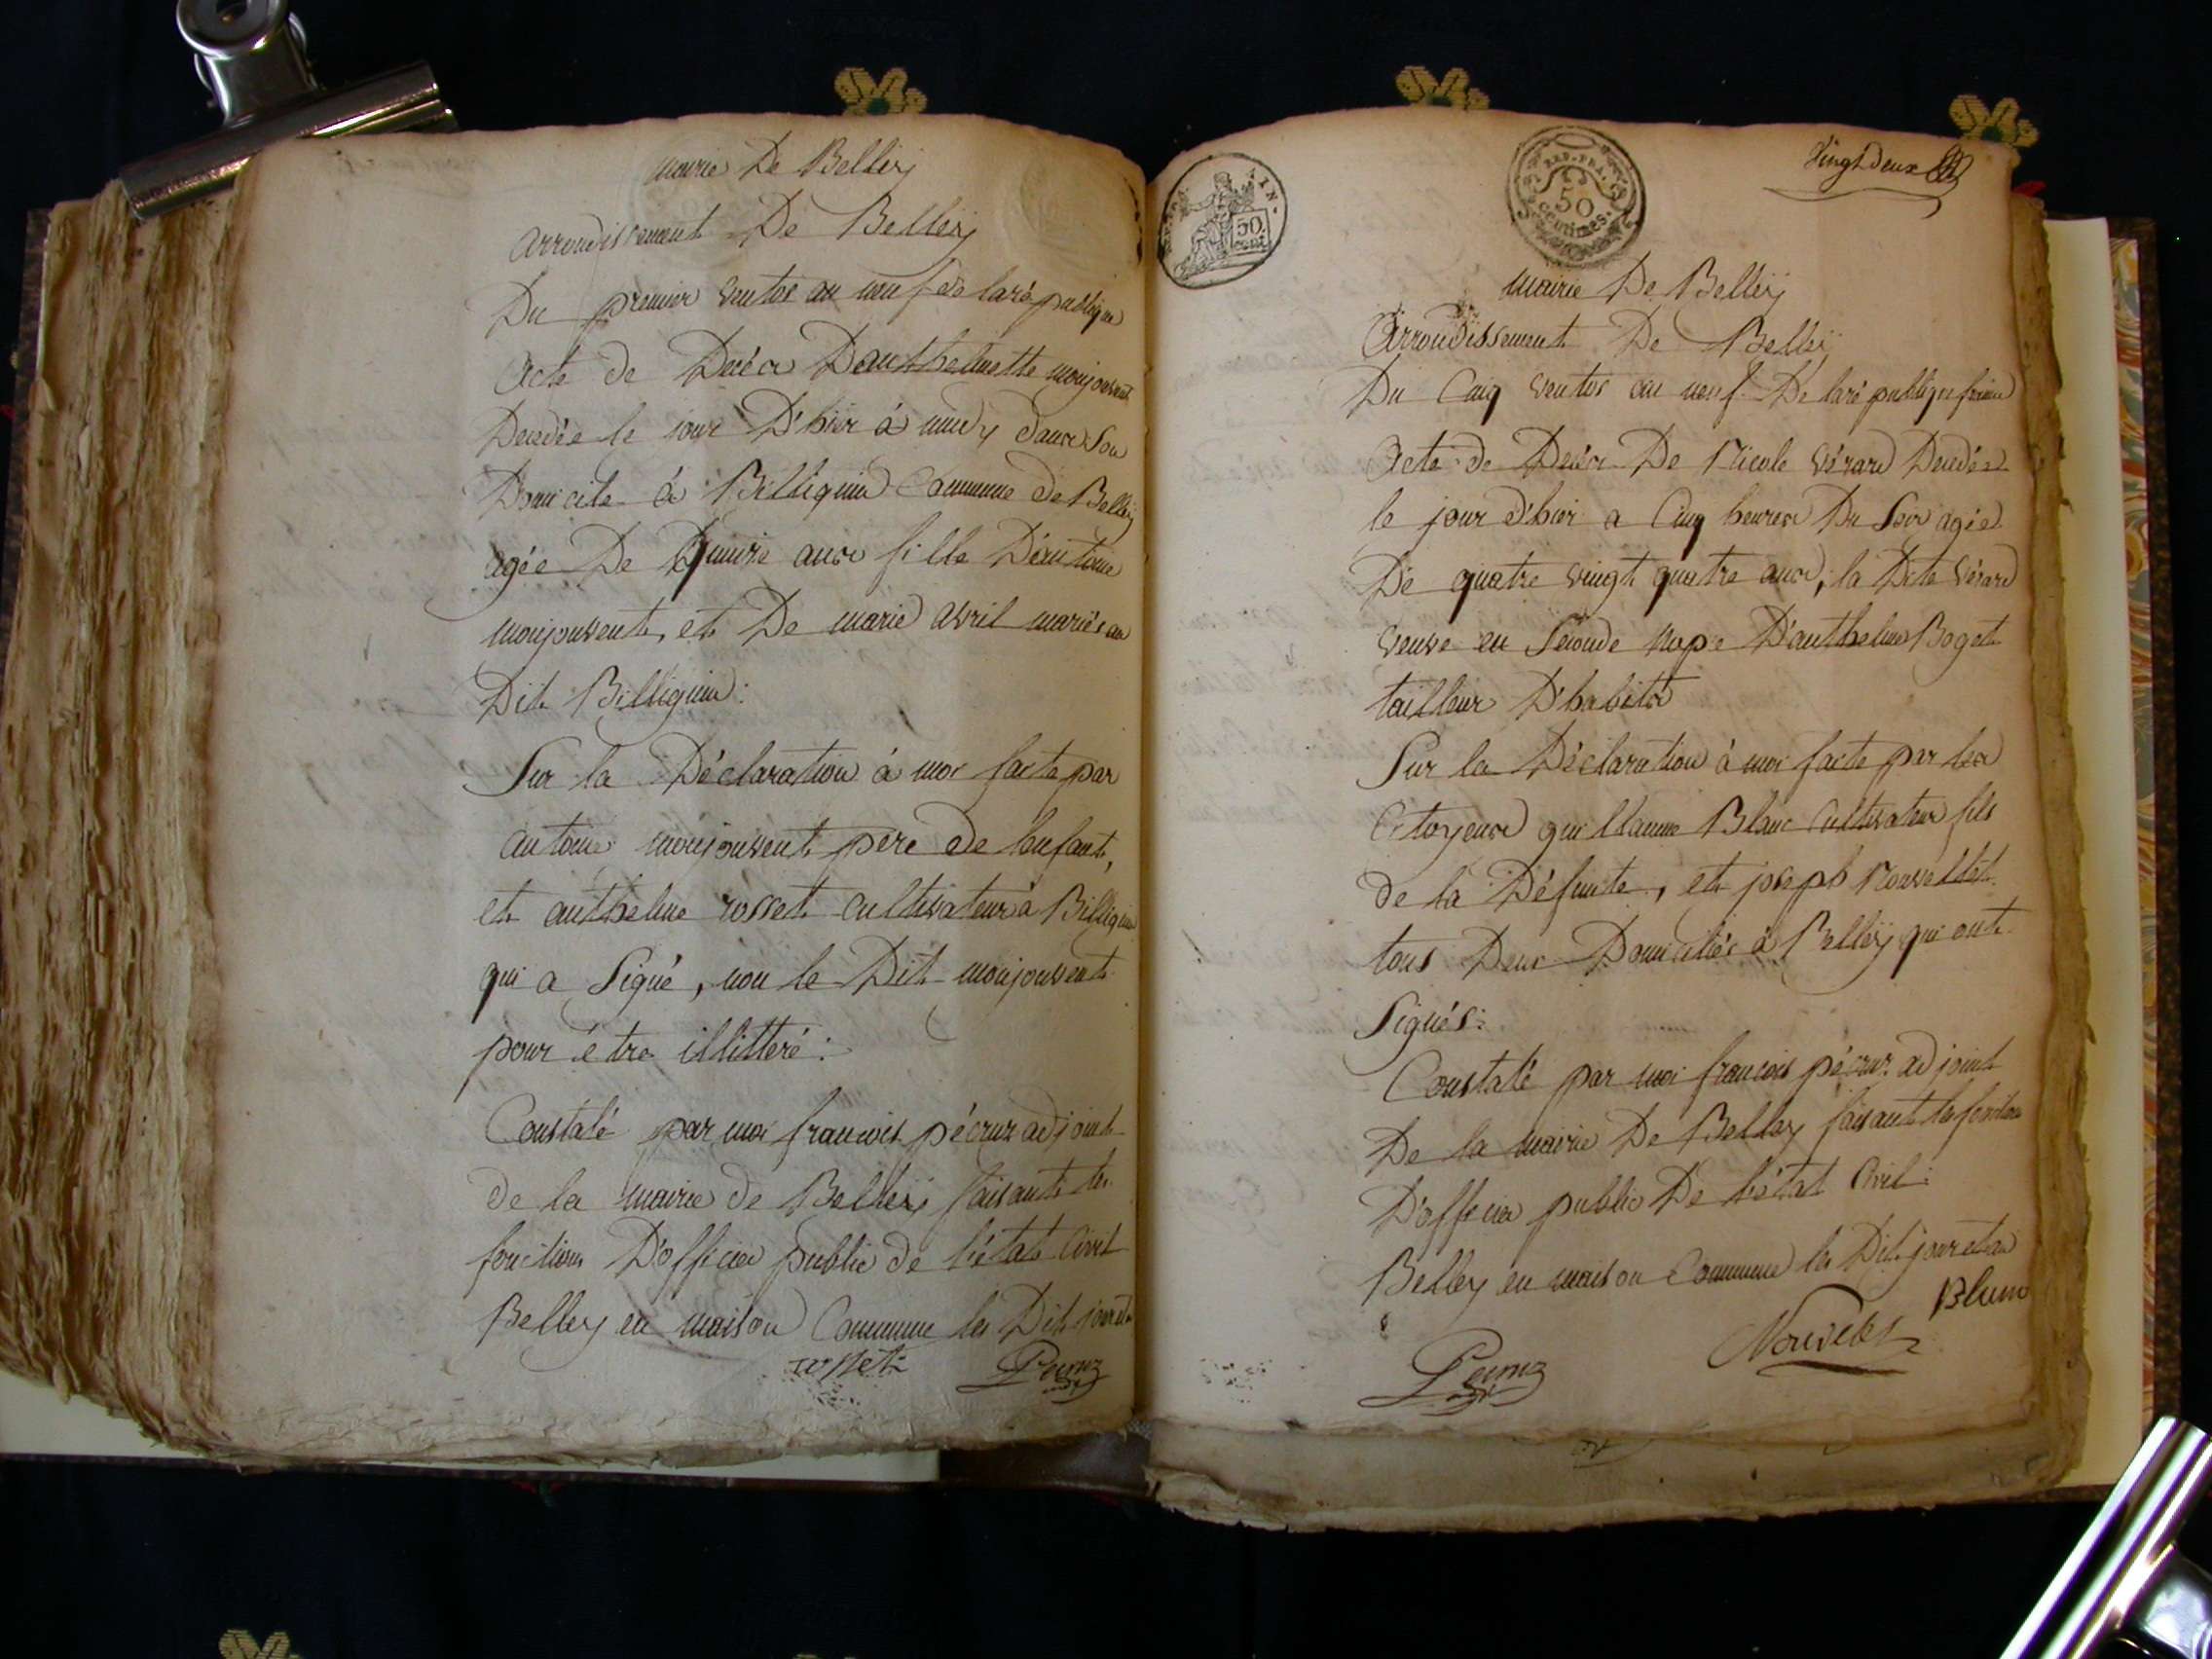 mairie De Belley
arrondissement De Belley
Du premier ventos an neuf de la république
Acte de Décés Danthelmette monjouvent
Decedée le jour D'hier à midy dans Son
Domicile à Billignin Commune de Belley
agée De Quinze ans fille D'entoine
monjouvent, et De marie avril mariés au
Dit Billignin:
Sur la Déclaration à moi faite par
antoine monjouvent père de lenfant,
et anthelme rosset cultivateur à Billignin
qui a Signé, non le Dit monjouvent
pour être illittéré:
Constaté par moi francois pécruz adjoint
de la mairie de Belley faisant les
fonctions D'officier public de l'état Civil
Belley en maison Commune les Dit jour et an
rosset Pecruz
REP. FRA.
50
centimes.
AIN.
50
cent
vingt deux
mairie De Belley
Arrondissement De Belley
Du Cinq ventos an neuf De la république
Acte de Décés De Nicole Vérard Decedée
le jour d'hier a Cinq heures Du Soir agée
De quatre vingt quatre ans, la Dite Vérard
veuve en Seconde Nope D'anthelme Boget
tailleur D'habits
Sur la Déclaration à moi faite par les
Citoyens guillaume Blanc Cultivateur fils
de la Défunte, et joseph Nouvellet
tous Deux Domiciliés à Belley qui ont
Signés:
Constaté par moi francois pécruz adjoint
De la mairie De Belley faisant les fonctions
D'officier public De l'état Civil:
Belley en maison Commune les Dit jour et an
Blanc
Nouvelet
Pecruz